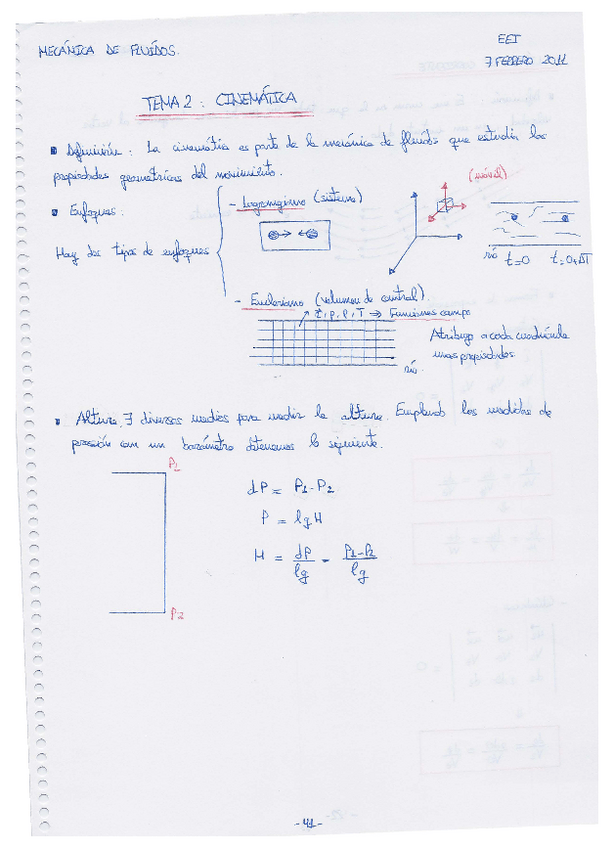 MECÁNICA DE FLUÍDOS.
EEI
7 FEBRERO 2011
TEMA 2 : CINEMÁTICA
Definición : La cinemática es parte de la mecánica de fluidos que estudia las
propiedades geométricas del movimiento.
Enfoques :
Hay dos tipos de enfoques
- Lagrangiano (sistema)
(móvil)
río t=0 t=0+ΔT
- Euleriano (volumen de control).
P, ρ, T → Funciones campo
Atribuyo a cada cuadrícula
unas propiedades.
río.
Altura. ∃ diversos medios para medir la altura. Empleando las medidas de
presión con un barómetro obtenemos lo siguiente.
P1
P2
dP = P1 - P2
P = ρgH
H = dP/ρg = P1-P2/ρg
- 41 -